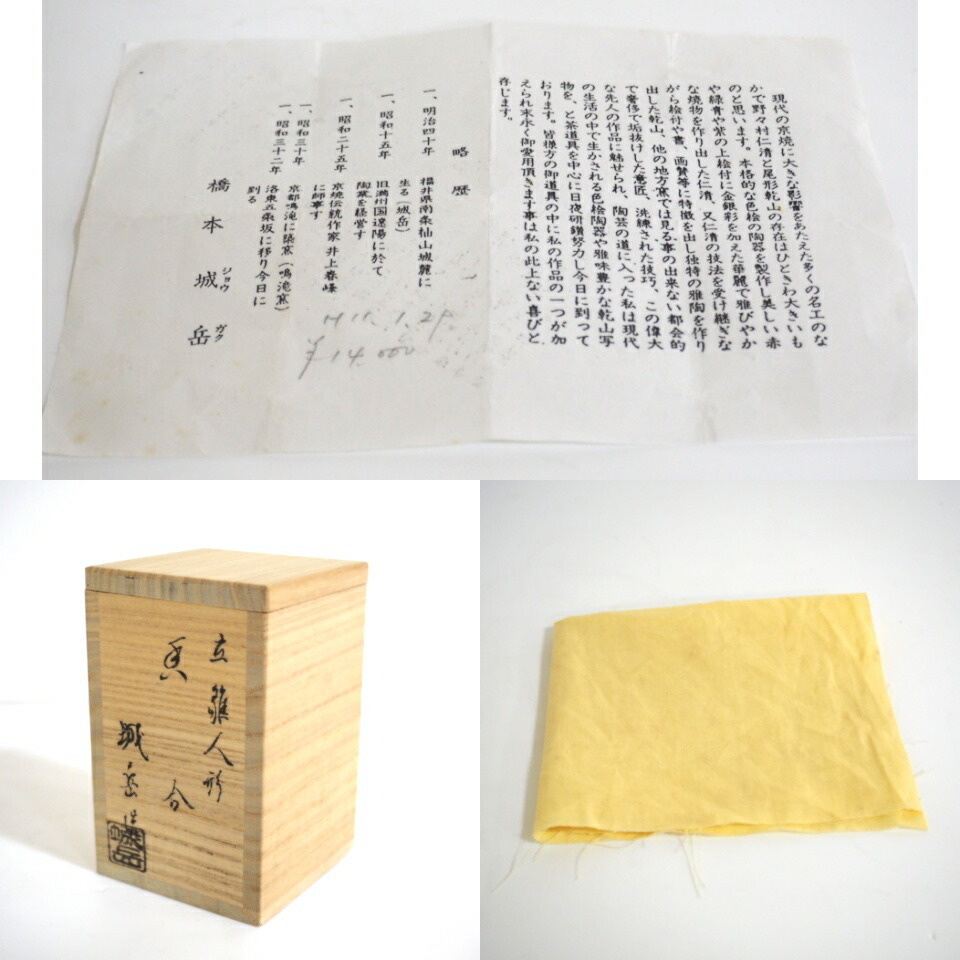 現代の京焼に大きな影響をあたえた多くの名工のな
かで野々村仁清と尾形乾山の存在はひときわ大きいも
のと思います。本格的な色絵の陶器を製作し美しい赤
や緑青や紫の上絵付に金銀彩を加えた華麗で雅びやか
な焼物を作り出した仁清、又仁清の技法を受け継ぎな
がら絵付や書、画賛等に特徴を出し独特の雅陶を作り
出した乾山、他の地方窯では見る事の出来ない都会的
で奢侈で垢抜けした意匠、洗練された技巧、この偉大
な先人の作品に魅せられ、陶芸の道に入った私は現代
の生活の中で生かされる色絵陶器や雅味豊かな乾山写
物を、と茶道具を中心に日夜研鑽努力し今日に到って
おります。皆様方の御道具の中に私の作品の一つが加
えられ末永く御愛用頂きます事は私の此上ない喜びと
存じます。
略歴
一、明治四十年 福井県南条杣山城麓に
生る(城岳)
一、昭和十五年 旧満州国遼陽に於て
陶業を経営す
一、昭和二十五年 京焼伝統作家 井上春峰
に師事す
一、昭和三十年 京都鳴滝に築窯(鳴滝窯)
一、昭和三十二年 洛東五条坂に移り今日に
到る
橋本城岳
ジョウ ガク
H11.1.29
¥14.000
立雛人形
香合
城岳造
城岳